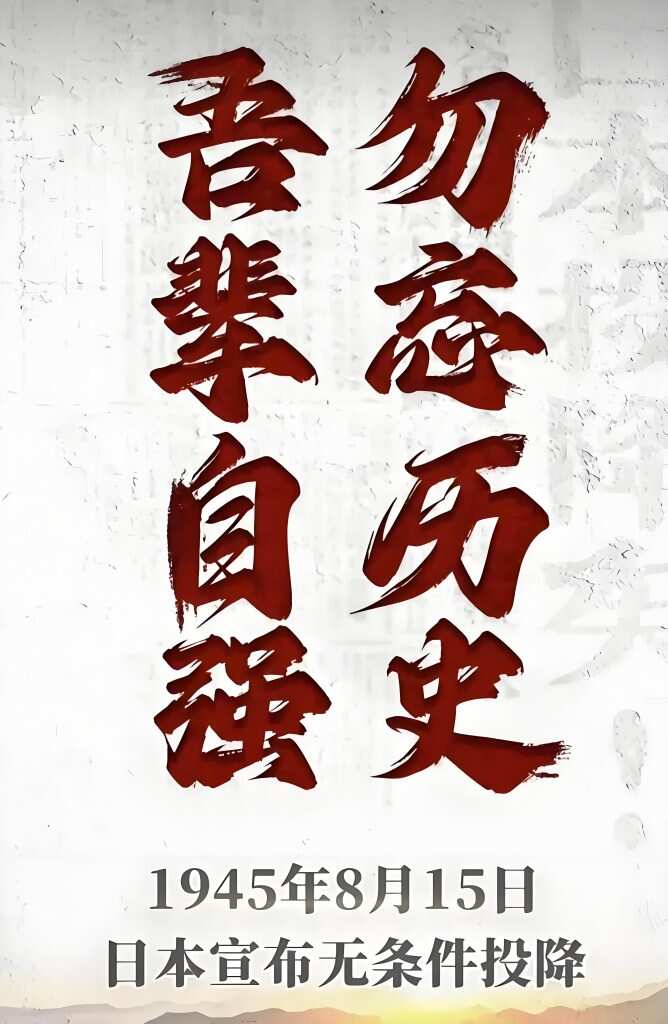 勿忘历史
吾辈自强
1945年8月15日
日本宣布无条件投降